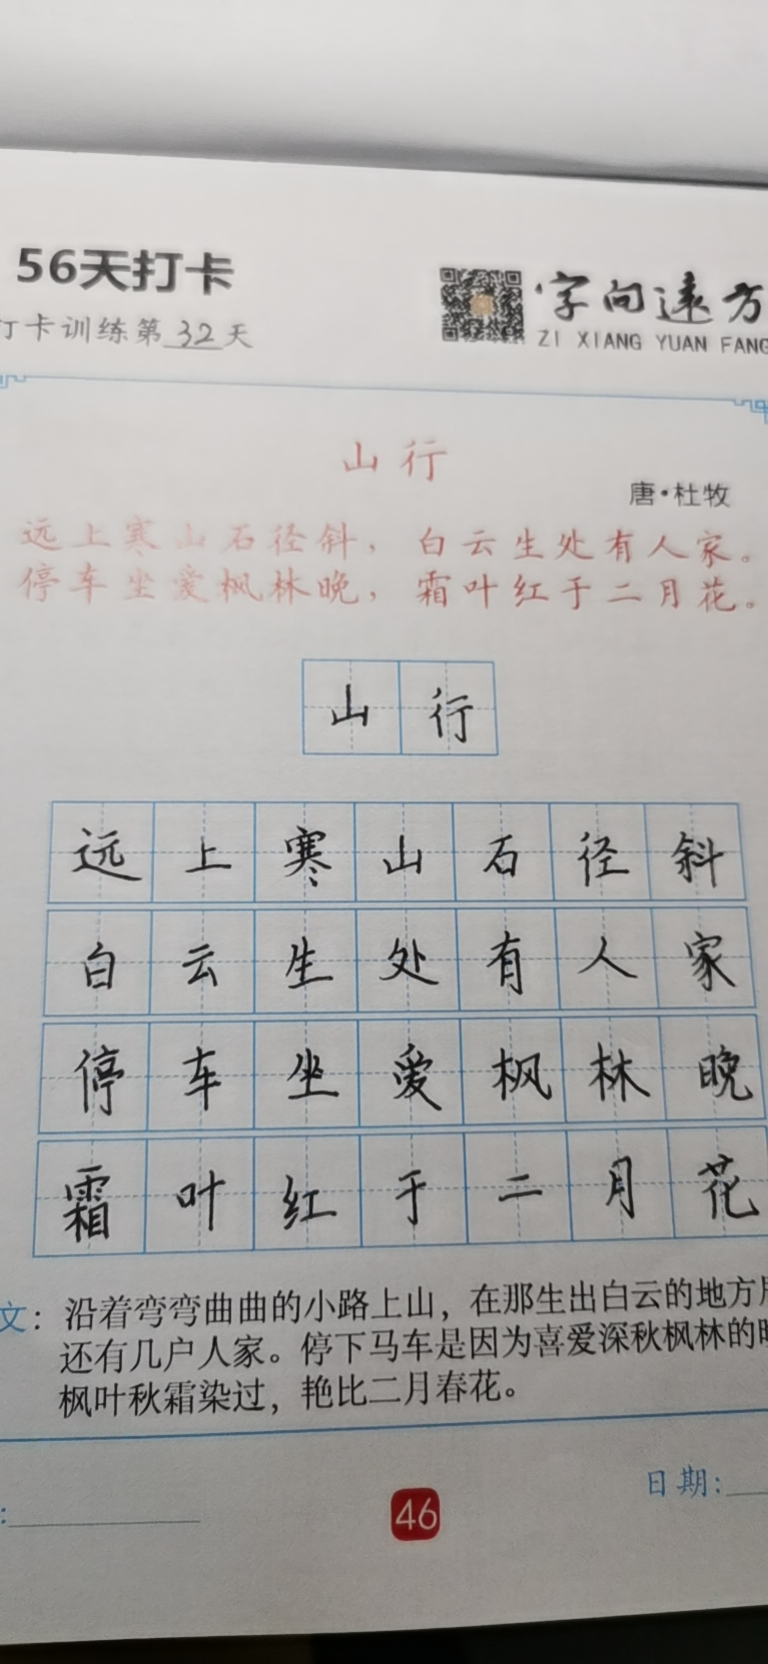 56天打卡
打卡训练第32天
字向远方
ZI XIANG YUAN FANG
山行
唐·杜牧
远上寒山石径斜，白云生处有人家。
停车坐爱枫林晚，霜叶红于二月花。
山行
远上寒山石径斜
白云生处有人家
停车坐爱枫林晚
霜叶红于二月花
文：沿着弯弯曲曲的小路上山，在那生出白云的地方
还有几户人家。停下马车是因为喜爱深秋枫林的晚
枫叶秋霜染过，艳比二月春花。
日期：
46